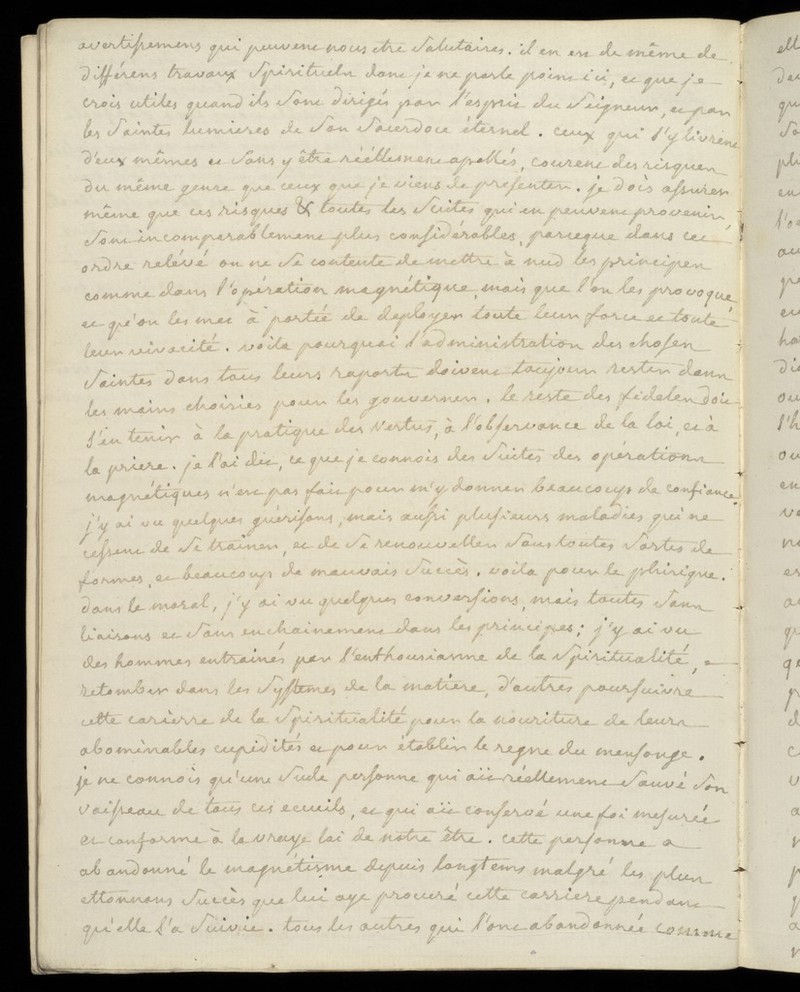 avertissemens qui peuvent nous etre salutaires. il en est de même de
différens travaux spirituels dont je ne parle point ici, et que je
crois utiles quand ils sont dirigés par l'esprit du seigneur, et par
les saintes lumieres de son sacerdoce éternel. ceux qui s'y livrent
d'eux mêmes et sans y être réellement apellés, courent des risques
du même genre que ceux que je viens de presenter. je dois assurer
même que ces risques & toutes les suites qui en peuvent provenir
sont incomparablement plus considérables, parceque dans cet
ordre relévé on ne se contente de mettre à nud les principes
comme dans l'opération magnétique, mais que l'on les provoque,
et qu'on les met à portée de deployer toute leur force et toute
leur vivacité. voila pourquoi l'administration des choses
saintes dans tous leurs raports doivent toujours rester dans
les mains choisies pour les gouverner. le reste des fideles doit
s'en tenir à la pratique des vertus, à l'observance de la loi, et à
la priere. je l'ai dit, ce que je connois des suites des opérations
magnétiques n'est pas fait pour m'y donner beaucoup de confiance.
j'y ai vu quelques guérisons, mais aussi plusieurs maladies qui ne
cessent de se trainer, et de se renouveller sous toutes sortes de
formes, et beaucoup de mauvais succès. voila pour le phisique.
dans le moral, j'y ai vu quelques conversions, mais toutes sans
liaisons et sans enchainement dans les principes; j'y ai vu
des hommes entrainés par l'enthousiasme de la spiritualité,
retomber dans les systemes de la matiere, d'autres poursuivre
cette carierre de la spiritualité pour la nouriture de leurs
abominables cupidités et pour établir le regne du mensonge.
je ne connois qu'une seule personne qui ait réellement sauvé son
vaisseau de tous ces ecueils, et qui ait conservé une foi mesurée
et conforme à la vraye loi de notre être. cette personne a
abandonné le magnétisme depuis longtems malgré les plus
ettonnans succès que lui aye procuré cette carriere pendant
qu'elle l'a suivie. tous les autres qui l'ont abandonnée comme